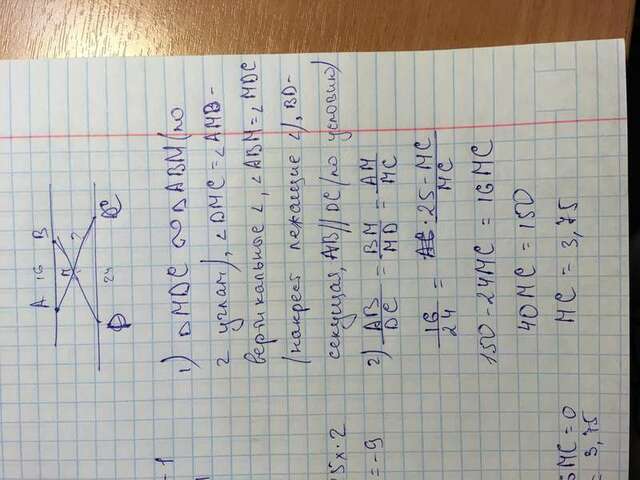 A 16 B
M ?
D 24 C
- 1
1) △MDC ∾ △ABM (по
2 углам), ∠DMC = ∠AMB -
вертикальные ∠, ∠ABM = ∠MDC
(накрест лежащие ∠), BD-
секущая, AB // DC (по условию)
5x·2
= -9
2) AB/DC = BM/MD = AM/MC
16/24 = 25-MC/MC
150-24MC = 16MC
40MC = 150
MC = 3,75
MC = 0
= 3,75